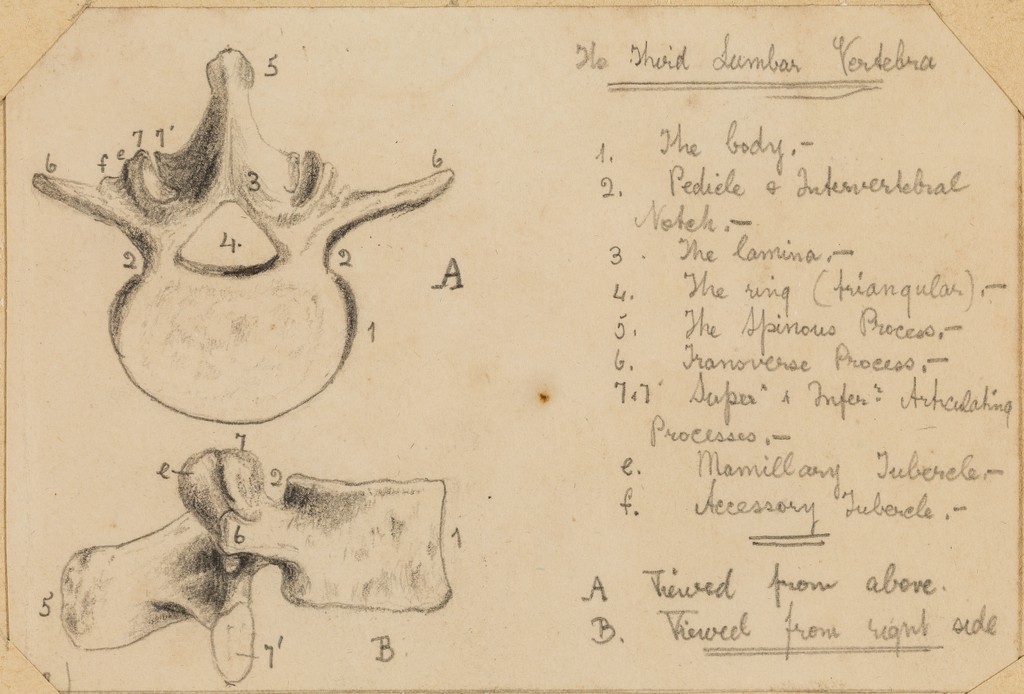 The Third Lumbar Vertebra
1. The body.-
2. Pedicle & Intervertebral
Notch.-
3. The lamina.-
4. The ring (triangular).-
5. The Spinous Process.-
6. Transverse Process.-
7,7' Super" & Infer" Articulating
Processes.-
e. Mamillary Tubercle.-
f. Accessory Tubercle.-
A Viewed from above.
B. Viewed from right side
5
7 7'
6 f e
6
3
4.
2 2
A
1
7
e 2
6
1
5
7'
B